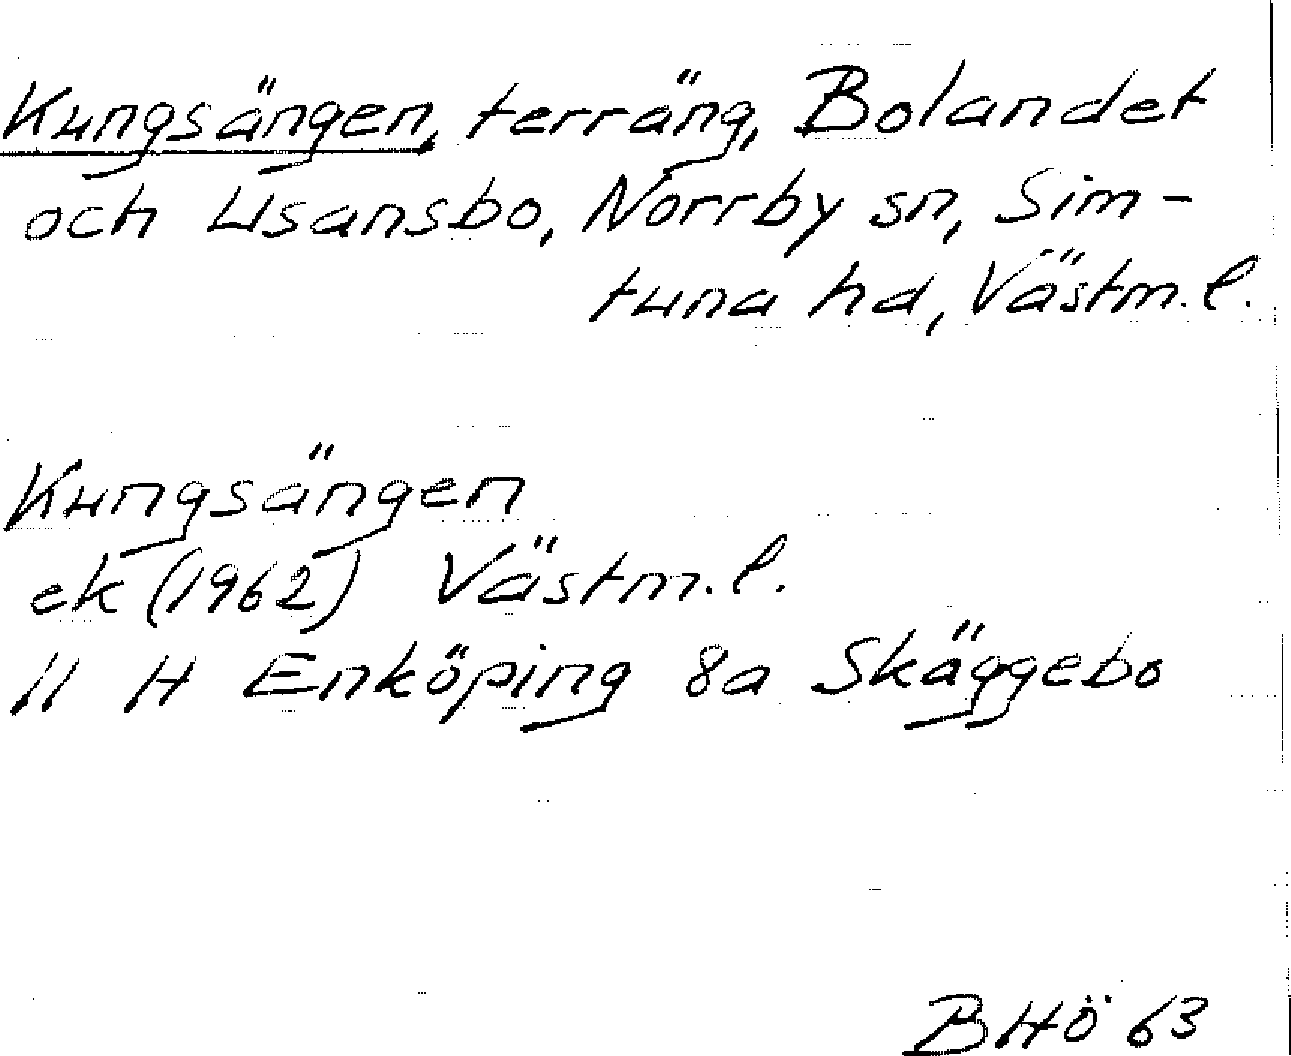 Kungsängen, terräng, Bolandet
och Lisansbo, Norrby sn, Sim-
tuna hd, Västm. l.
Kungsängen
ek (1962) Västm. l.
11 H Enköping 8a Skäggebo
BHÖ 63